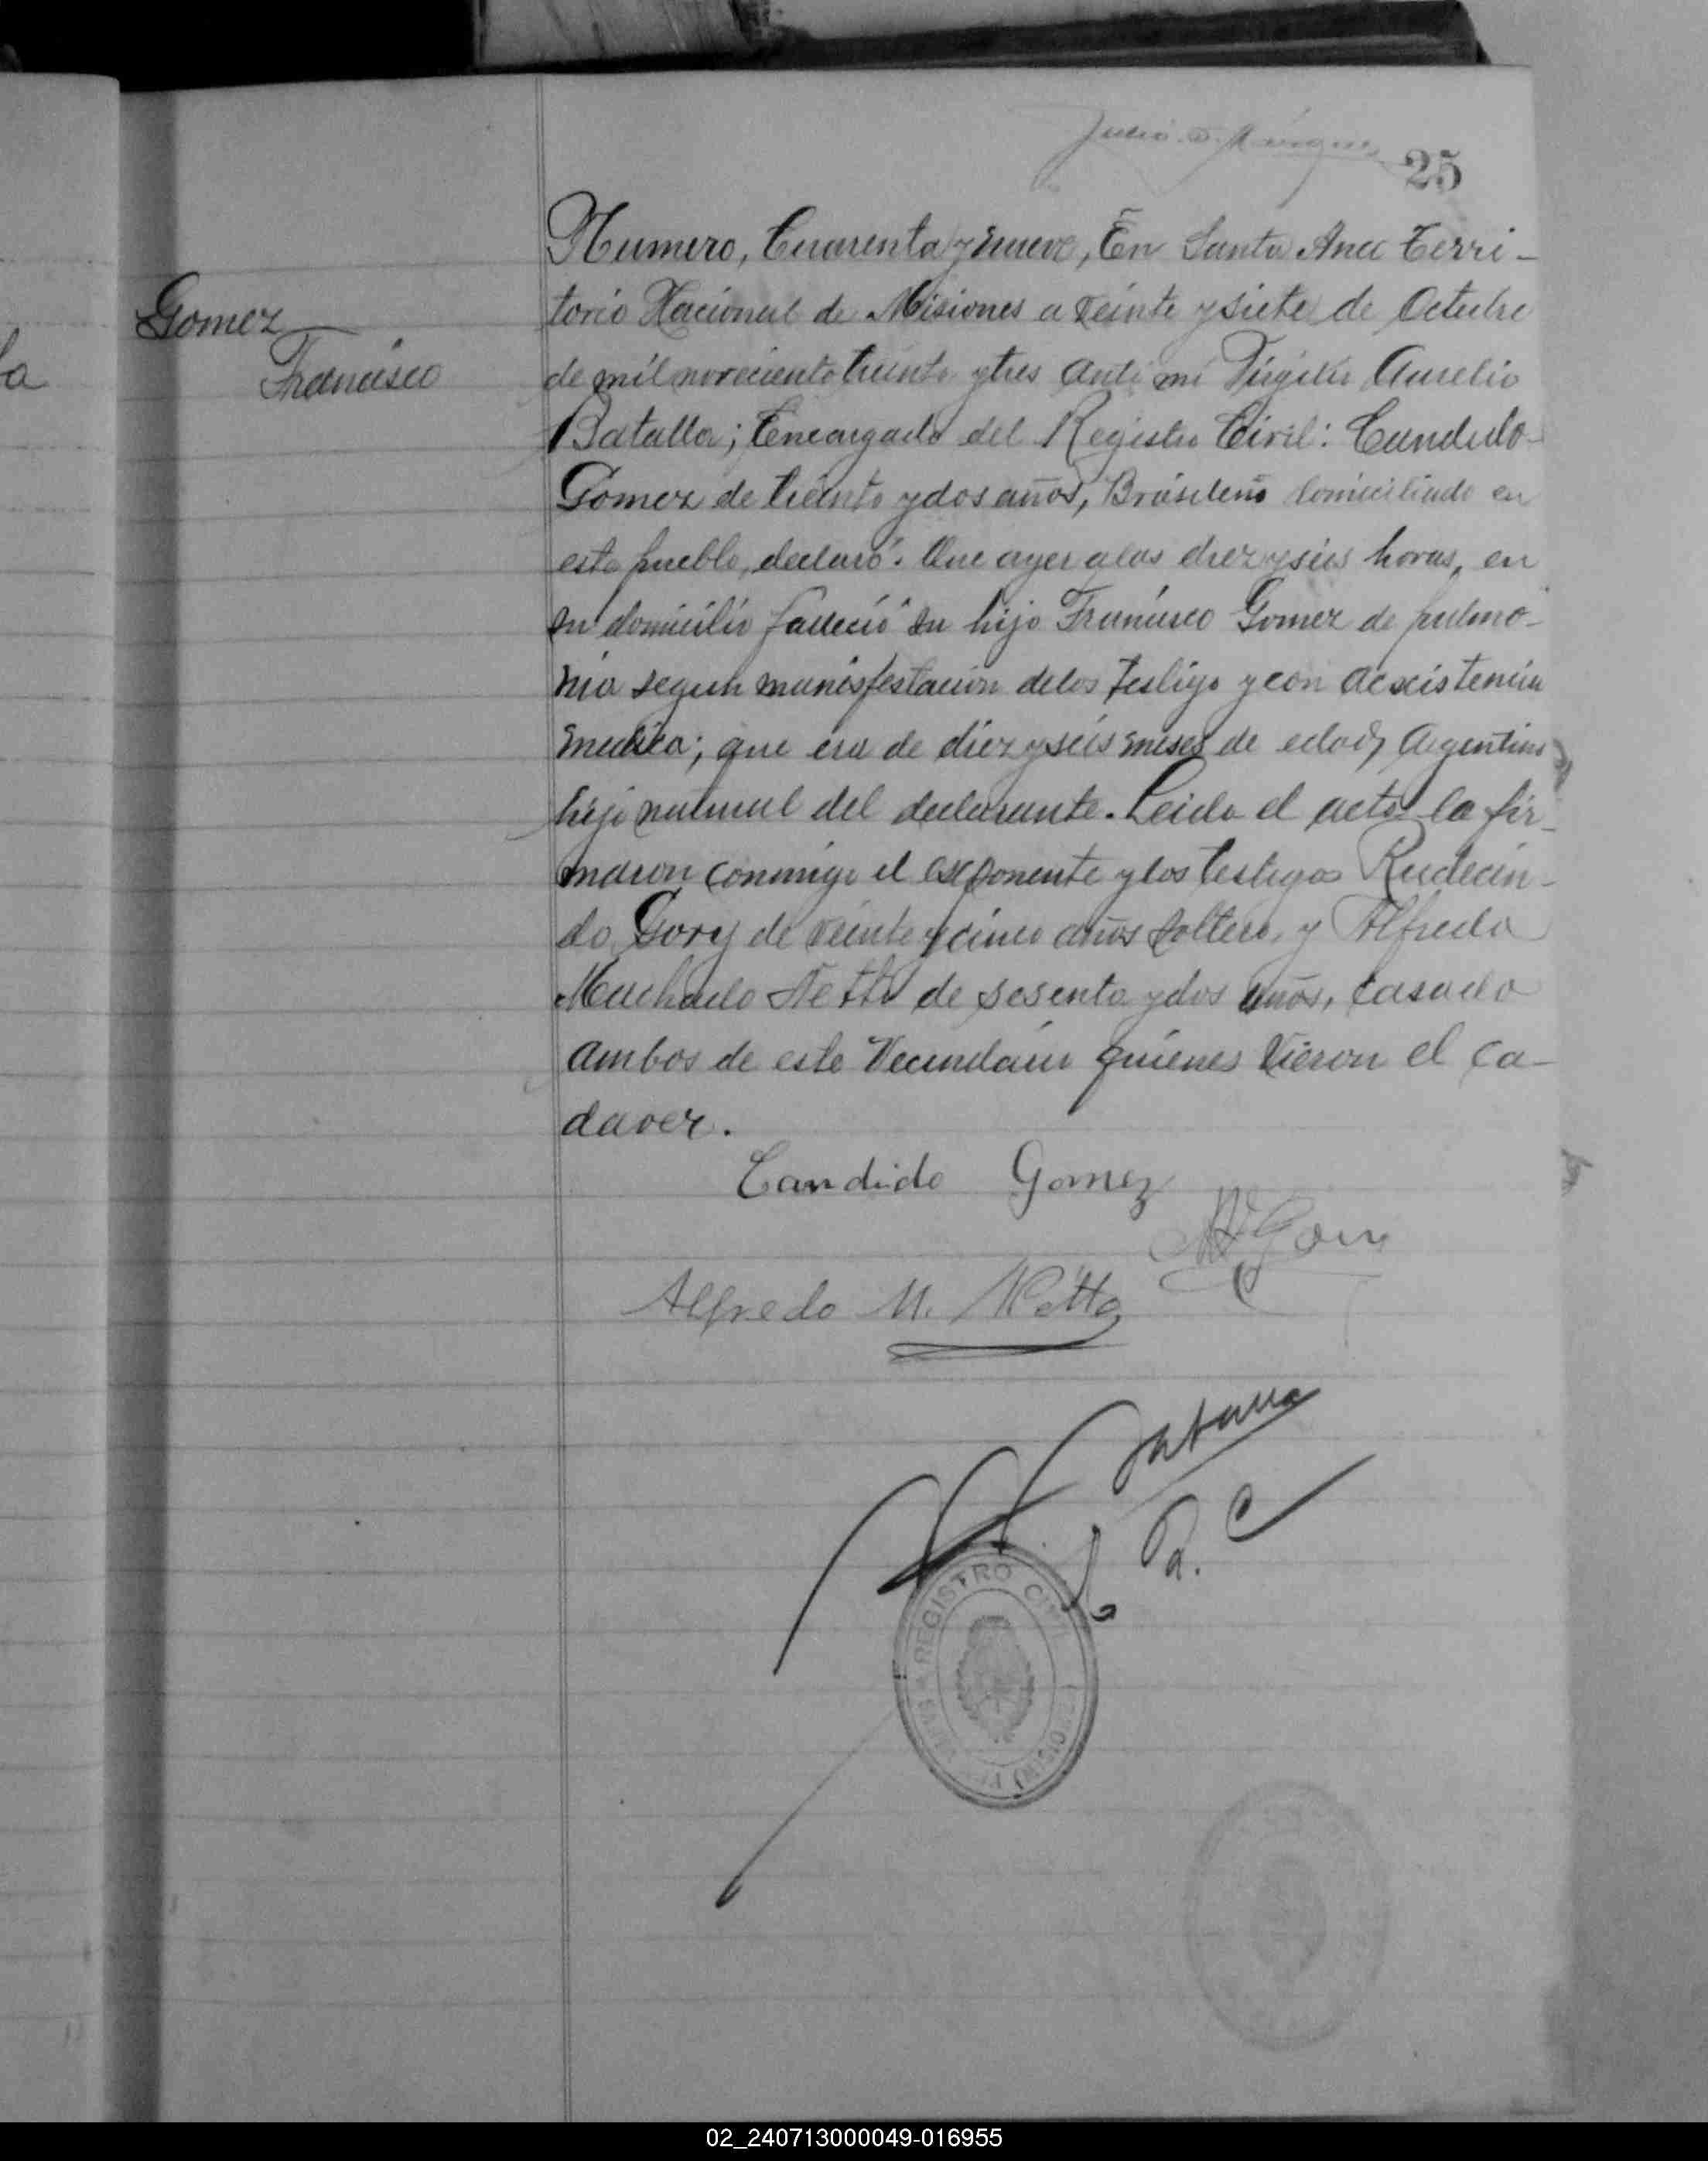 25
Gomez
Francisco
Numero, Cuarenta y nueve, En Santa Ana Terri-
torio Nacional de Misiones a veinte y siete de Octubre
de mil noveciento treinta y tres ante mi Virgilio Aurelio
Batalla; Encargado del Registro Civil: Candido
Gomez de treinta y dos años, Brasileño domiciliado en
este pueblo, declaró: Que ayer a las diez y seis horas, en
su domicilio falleció su hijo Francisco Gomez de pulmo-
nia segun manisfestacion de los testigo y con acxistencia
medica; que era de diez y seis meses de edad, Argentino
hijo natural del declarante. Leida el acta la fir-
maron conmigo el exponente y los testigos Rudecin-
do Gory de veinte y cinco años soltero, y Alfredo
Machado Netto de sesenta y dos años, casado
ambos de este Vecindario quienes vieron el ca-
daver.
Candido Gomez
Alfredo M. Netto
Batalla
R. C
REGISTRO CIVIL
02_240713000049-016955